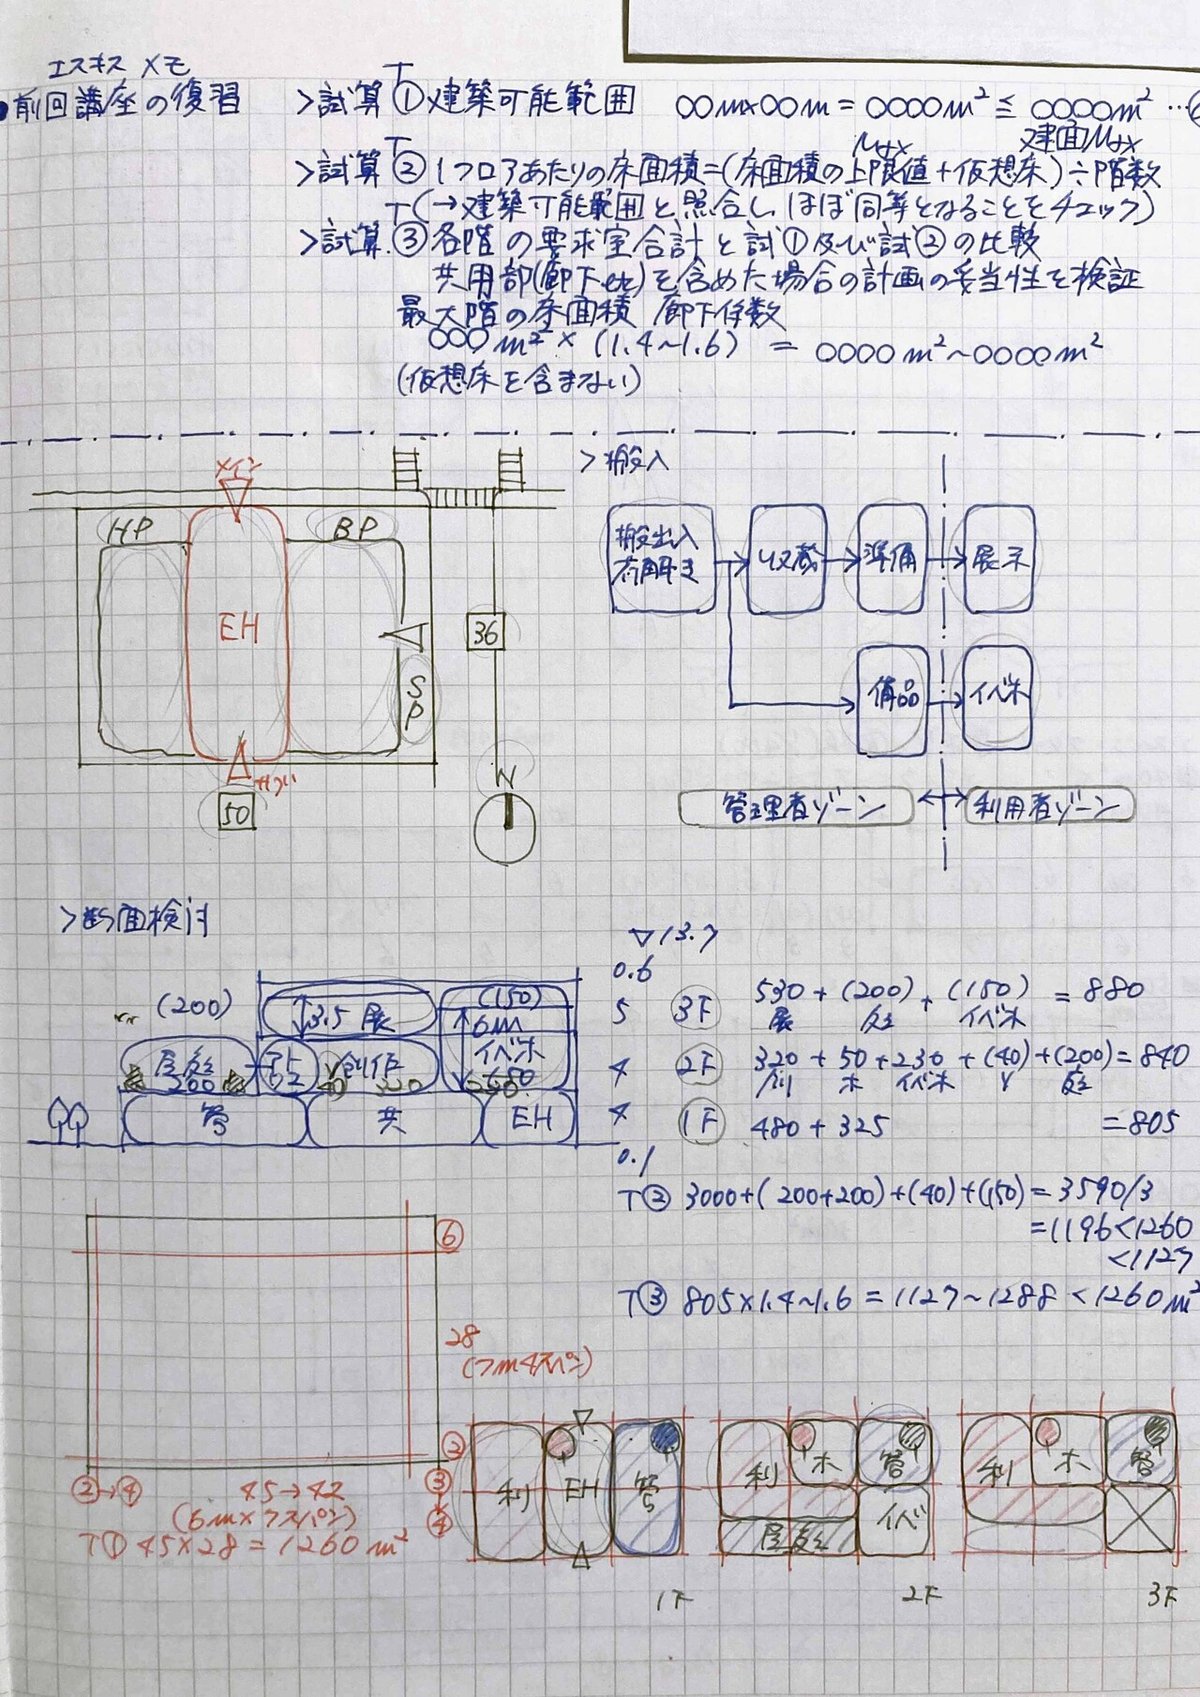 エスキス メモ
●前回講座の復習
>試算 T① 建築可能範囲 ○○m×○○m = ○○○○m² ≦ ○○○○m² …
建面Max
Max
>試算 T② 1フロアあたりの床面積=(床面積の上限値+仮想床)÷階数
(→建築可能範囲と照合し ほぼ同等となることをチェック)
>試算 T③ 各階の要求室合計と試①及び試②の比較
共用部(廊下etc)を含めた場合の計画の妥当性を検証
最大階の床面積 廊下係数
○○○m² × (1.4~1.6) = ○○○○m²~○○○○m²
(仮想床を含まない)
メイン
HP
BP
EH
36
SP
サブ
50
N
>搬入
搬出入
荷解き
収蔵
準備
展示
備品
イベホ
管理者ゾーン
利用者ゾーン
>断面検討
(200)
3.5 展
(150)
6m
イベホ
屋庭
200
創作
管
共
EH
▽13.7
0.6
5
4
4
0.1
3F 530 + (200) + (150) = 880
展 庭 イベホ
2F 320 + 50 + 230 + (40) + (200) = 840
創 ホ イベホ V 庭
1F 480 + 325 = 805
T② 3000+(200+200)+(40)+(150) = 3590/3
=1196<1260
<1127
T③ 805×1.4~1.6 = 1127~1288 <1260m²
⑥
28
(7m4スパン)
②
③
④
②→④
45→42
(6m×7スパン)
T① 45×28 = 1260m²
利
EH
管
1F
利
ホ
管
屋庭
イベ
2F
利
ホ
管
3F